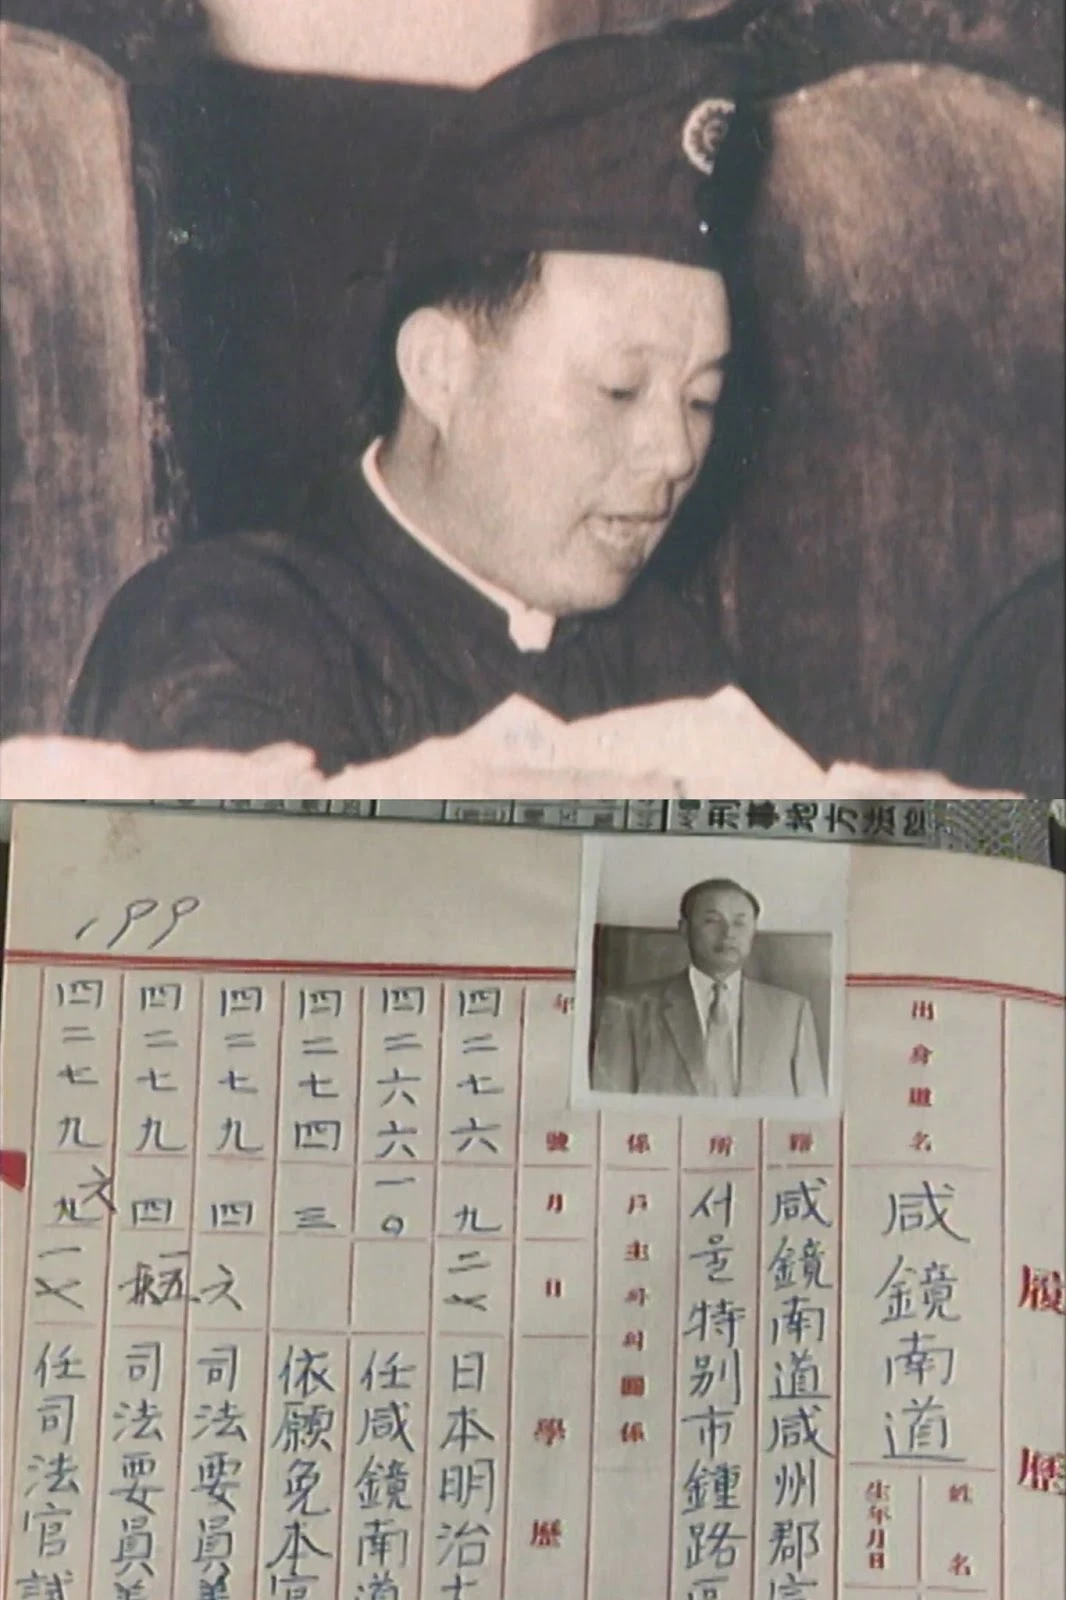 刑事地方法
199
履歷
出身道名
咸鏡南道
姓名
生年月日
籍
咸鏡南道咸州郡
所
서울特別市鍾路區
戶主와의關係
年號月日
學歷
四二七六 九 二
日本明治大
四二六六 一〇
任咸鏡南道
四二七四 三
依願免本官
四二七九 四 六
司法要員
四二七九 四 一五
司法要員
四二七九 六 一
任司法官試